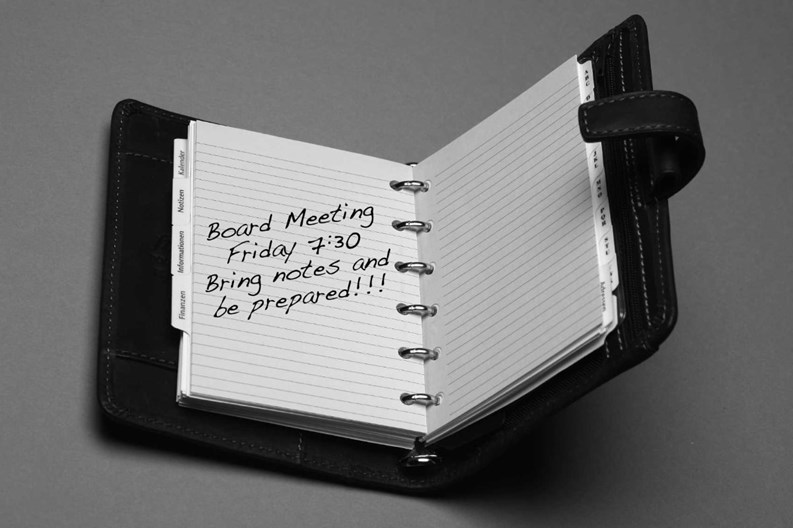 Kalender
Notizen
Informationen
Finanzen
Board Meeting
Friday 7:30
Bring notes and
be prepared!!!
ABC